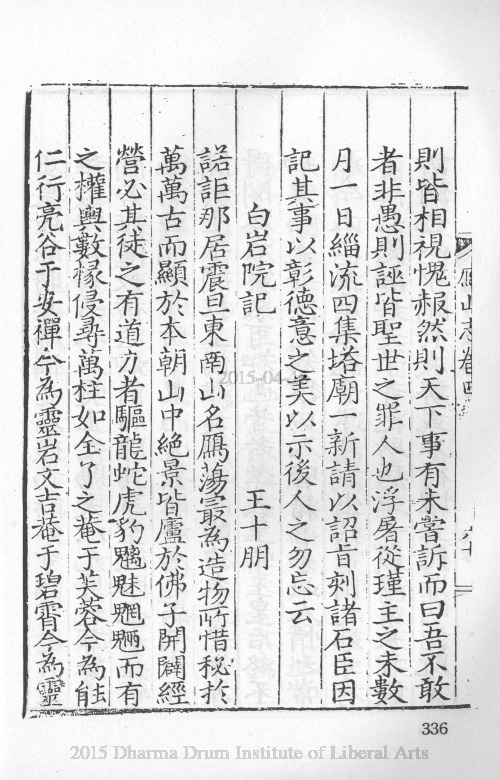 則皆相視愧赧然則天下事有未嘗訴而曰吾不敢
者非愚則誣皆聖世之罪人也浮屠從瑾主之未數
月一日緇流四集塔廟一新請以詔旨刻諸石臣因
記其事以彰德意之美以示後人之勿忘云
白岩院記 王十朋
諾詎那居震旦東南山名鴈蕩最為造物所惜秘於
萬萬古而顯於本朝山中絕景皆廬於佛子開闢經
營必其徒之有道方者驅龍蛇虎豹魑魅魍魎而有
之權輿數椽侵尋萬柱如全了之菴于芙蓉今為能
仁行亮谷于安禪今為靈岩文吉菴于碧霄今為靈
鴈山志卷四
336
2015-04
2015 Dharma Drum Institute of Liberal Arts